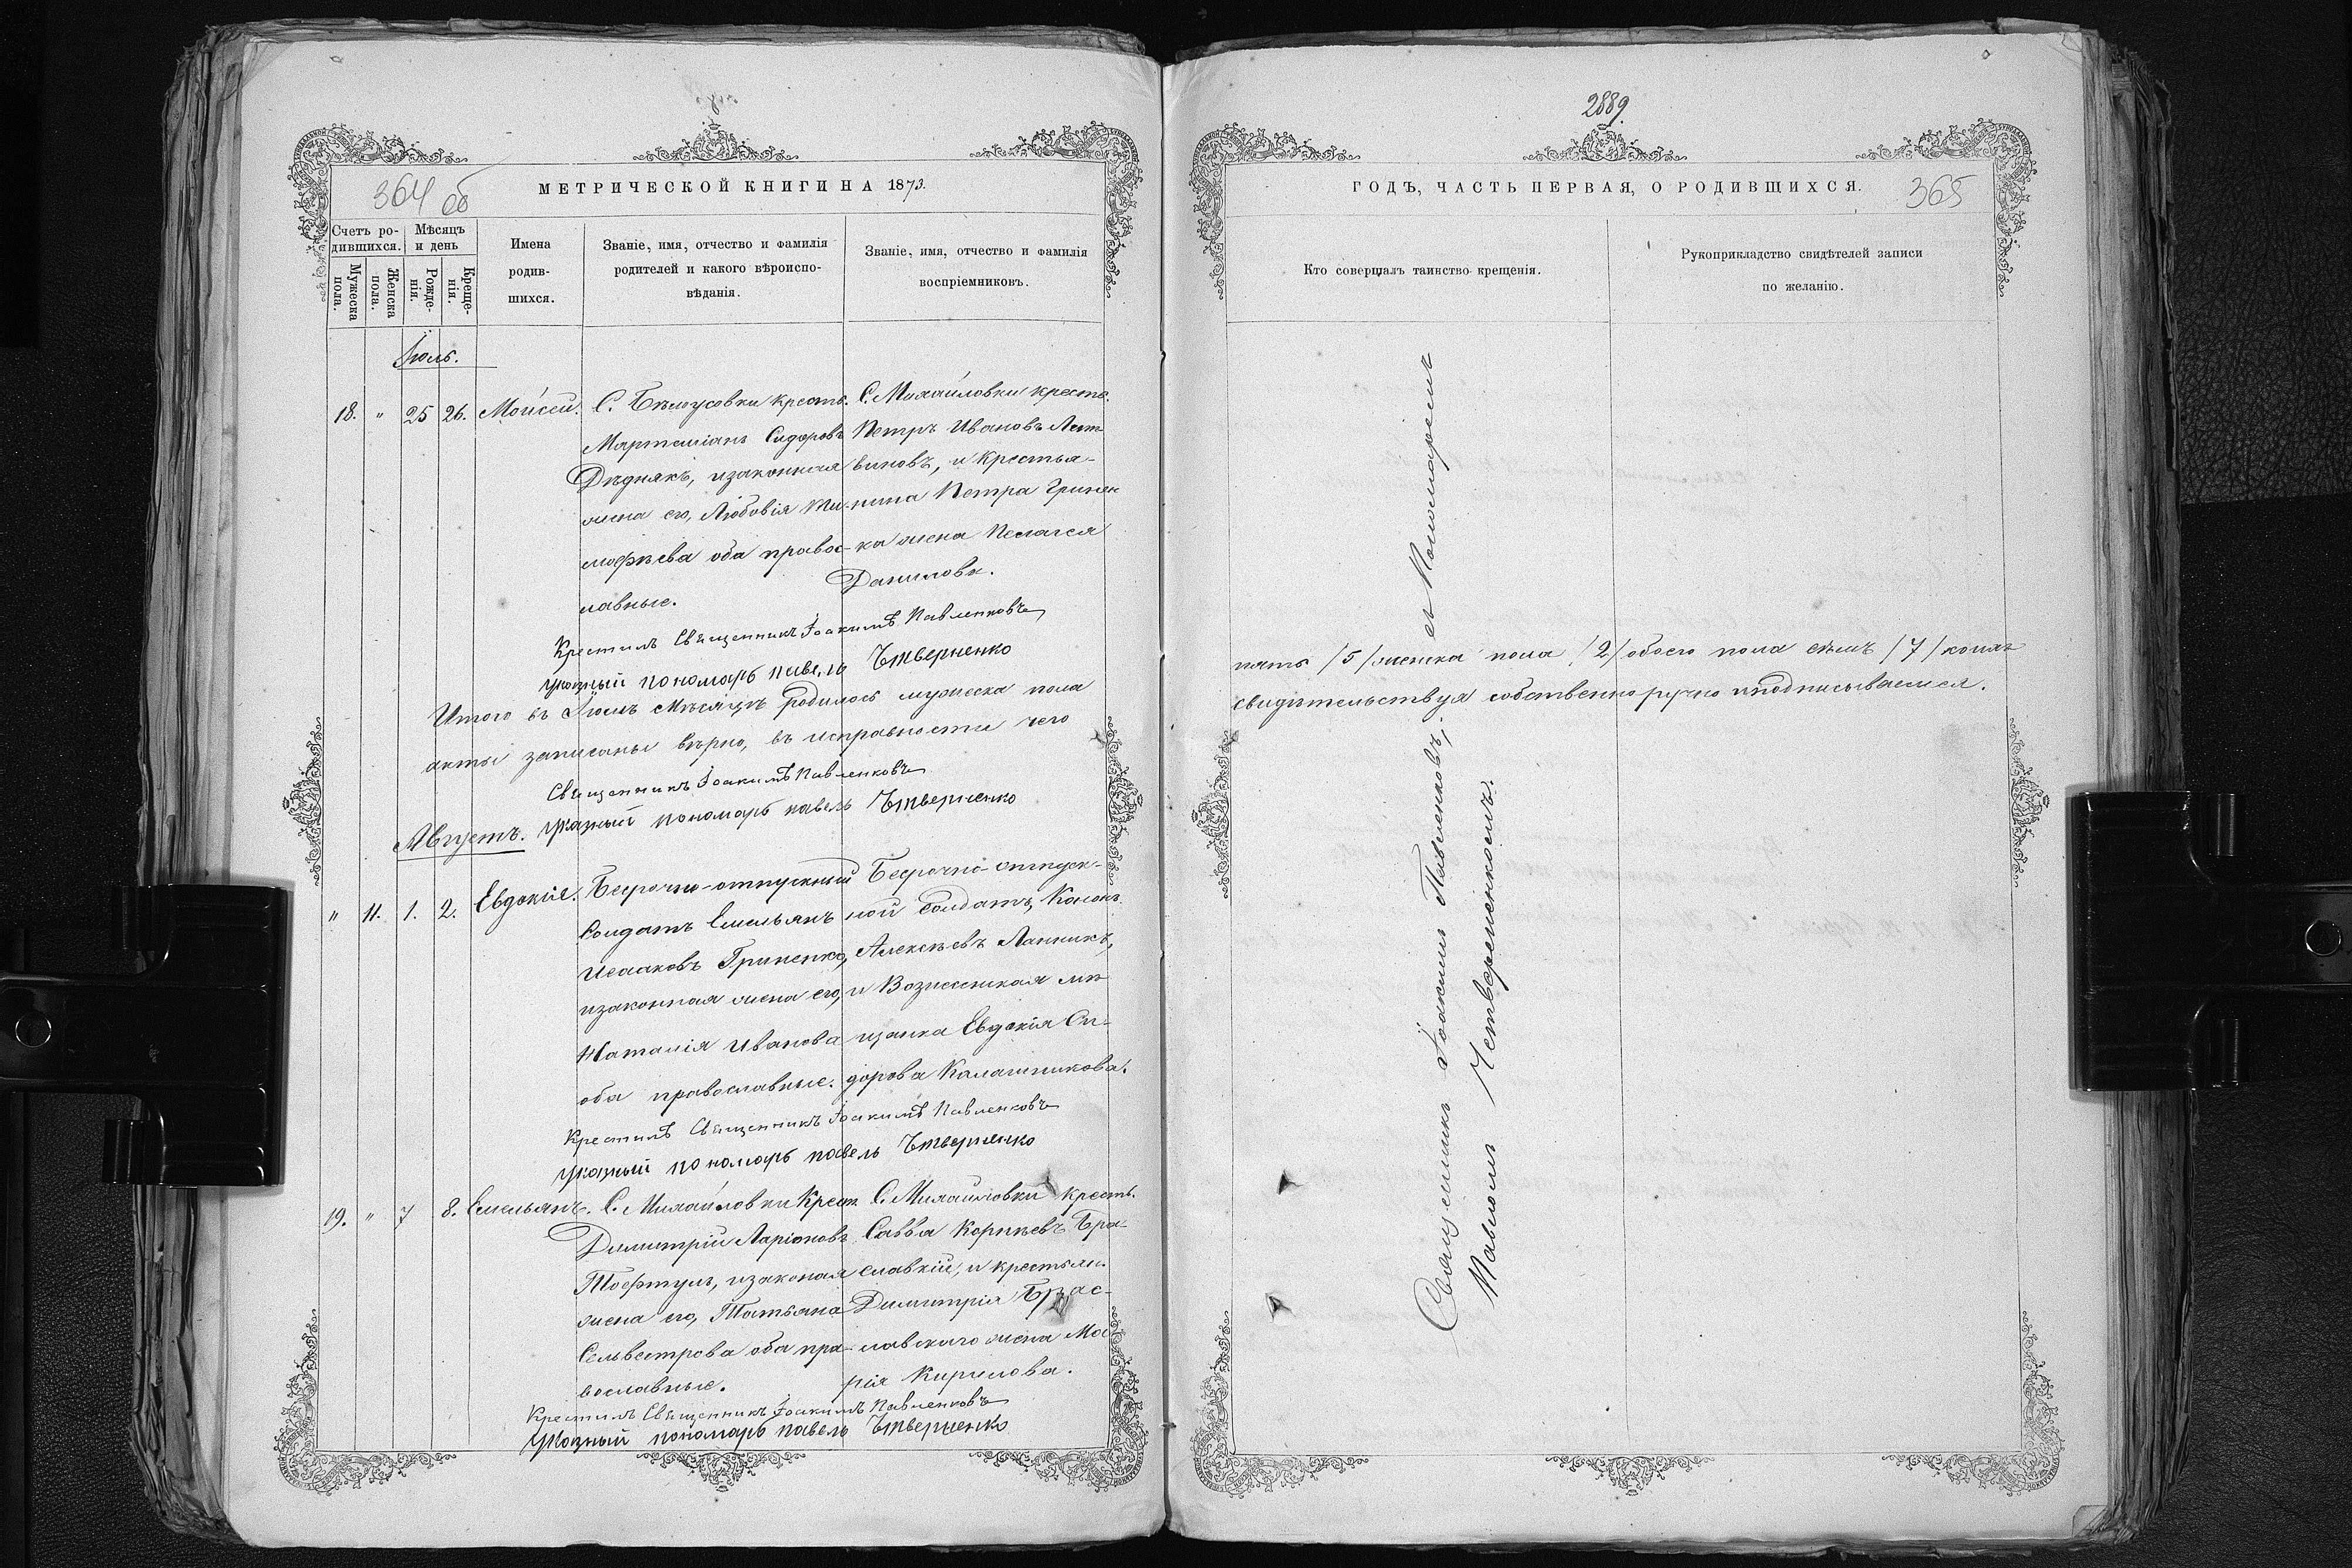 364 об
МЕТРИЧЕСКОЙ КНИГИ НА 1873.
Счетъ ро-
дившихся.
Мѣсяцъ
и день
Мужеска
пола.
Женска
пола.
Рожде-
нія.
Креще-
нія.
Имена
родив-
шихся.
Званіе, имя, отчество и фамилія
родителей и какого вѣроиспо-
вѣданія.
Званіе, имя, отчество и фамилія
воспріемниковъ.
Іюль.
18. " 25 26. Моѵсей.
С. Бѣлоусовки крестъ.
Сидоровъ
Дѣднякъ, изаконная
жена его, Любовія Ти-
мофѣева оба правос-
лавные.
С. Михайловки крестъ.
Петръ Ивановъ Лит-
виновъ, и крестья-
нина Петра Гринен
ка жена Пелагея
Данилова.
Крестилъ Священникъ Іоакимъ Павленковъ
указный пономарь павелъ Четверненко
Итого въ Іюлѣ мѣсяцѣ родилось мужеска пола
акты записаны вѣрно, въ исправности чего
Священникъ Іоакимъ Павленковъ
указный пономарь павелъ Четверненко
Августъ.
" 11. 1. 2. Евдокія.
Безсрочно-отпускный
солдатъ Емельянъ
Исааковъ Гриненко,
изаконная жена его,
Наталія Иванова
оба православные.
Безсрочно-отпуск-
ной солдатъ, Конон.
Алексѣевъ Ланникъ,
и Вознесенская мѣ
щанка Евдокія Си-
дорова Калашникова.
Крестилъ Священникъ Іоакимъ Павленковъ
указный пономарь павелъ Четверненко
19. " 7 8. Емельянъ.
С. Михайловки Крест.
Димитрій Ларіоновъ
Тофтулъ, изаконая
жена его, Татьяна
Сельвестрова оба пра-
вославные.
С. Михайловки крестъ.
Савва Корнѣевъ Бра-
славкій, и крестьян.
Димитрія Брас-
лавскаго жена Ма
рія Кирилова.
Крестилъ Священникъ Іоакимъ Павленковъ
указный пономарь павелъ Четверненко
2889.
ГОДЪ, ЧАСТЬ ПЕРВАЯ, О РОДИВШИХСЯ.
365
Кто совершалъ таинство крещенія.
Рукоприкладство свидѣтелей записи
по желанію.
пять /5/ женска пола /2/ обоего пола сѣмъ /7/ коихъ
свидѣтельствуя собственно ручно иподписываемся.
Священникъ Іоакимъ Павленковъ, съ Пономаремъ
Павломъ Четверненкомъ.